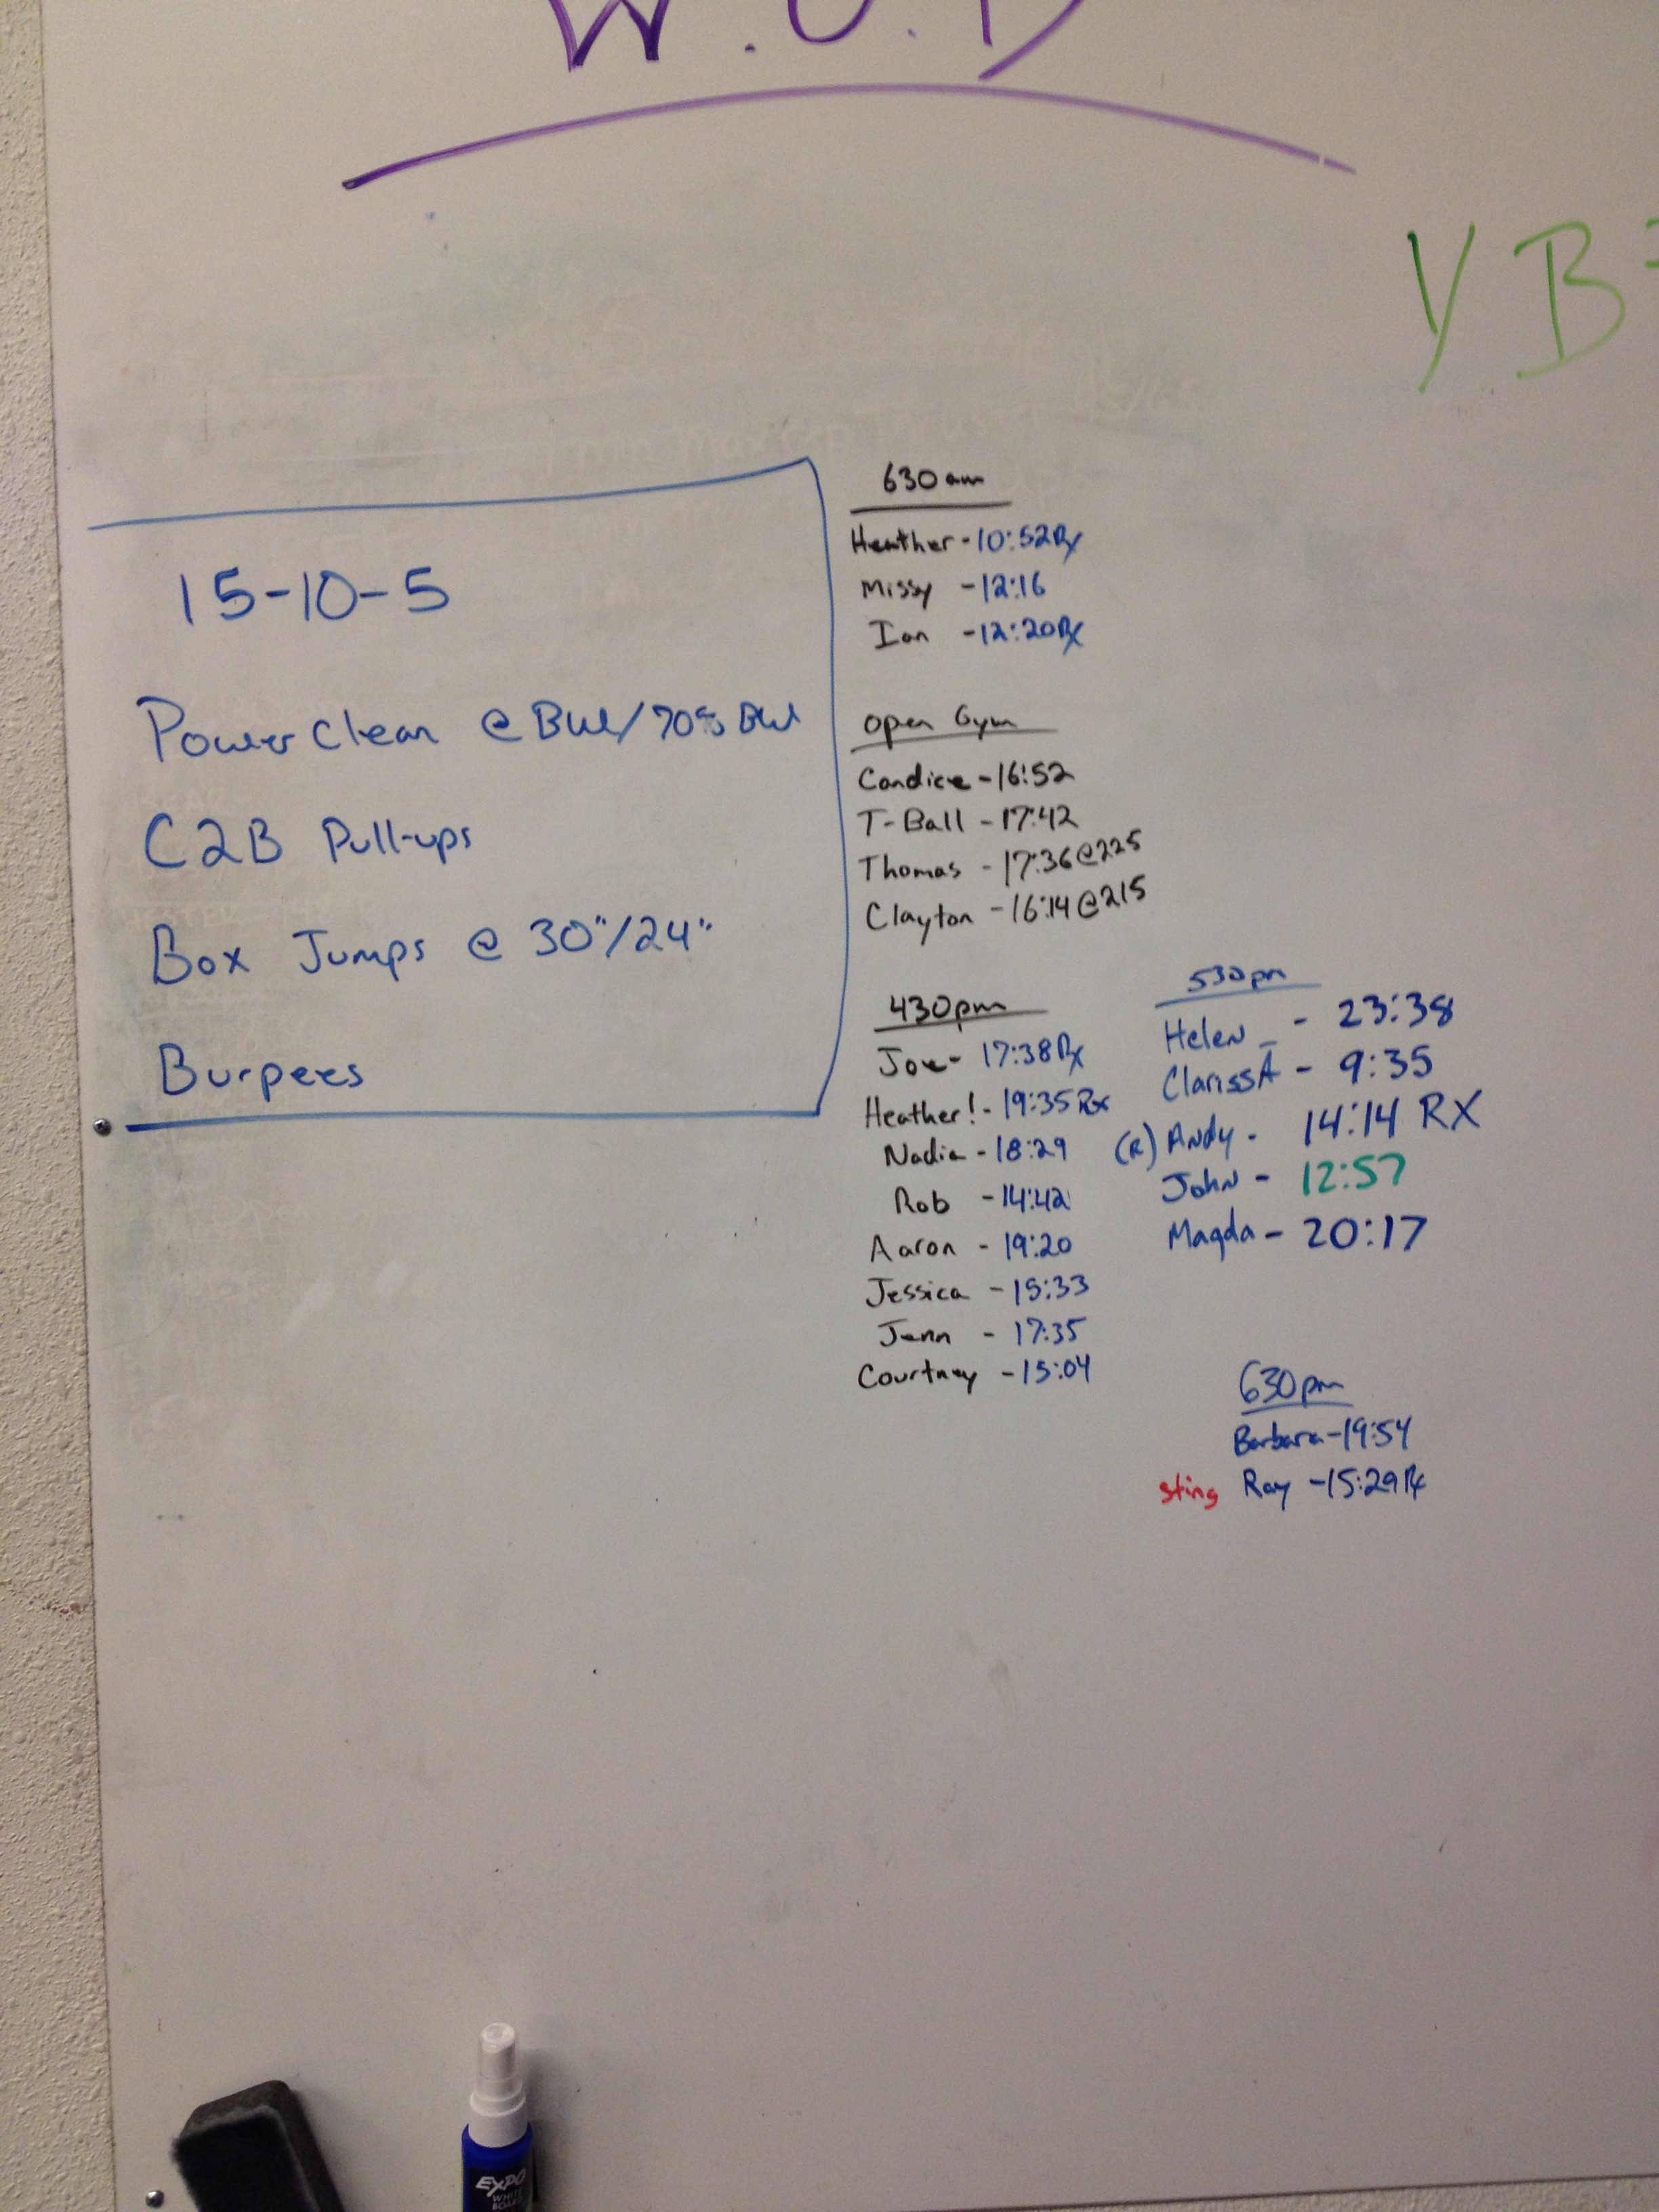 W.O.D
YB
15-10-5
Power Clean @ BW/70% BW
C2B Pull-ups
Box Jumps @ 30"/24"
Burpees
630am
Heather-10:52Rx
Missy -12:16
Ian -12:20Rx
Open Gym
Candice-16:52
T-Ball -17:42
Thomas -17:36@225
Clayton -16:14@215
430pm
Joe- 17:38Rx
Heather!-19:35Rx
Nadia -18:29
Rob -14:42
Aaron -19:20
Jessica -15:33
Jenn - 17:35
Courtney -15:04
530pm
Helen - 23:38
ClarissA - 9:35
(R) Andy - 14:14 RX
John - 12:57
Magda - 20:17
630pm
Barbara-19:54
sting Ray -15:29Rx
EXPO
WHITE
BOARD